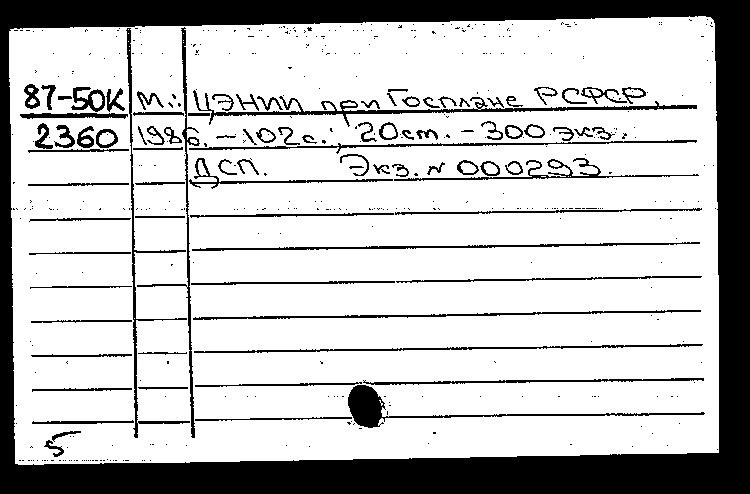 87-50К М.: ЦЭНИИ при Госплане РСФСР,
2360 1986. - 102 с.; 20 см. - 300 экз.
ДСП. Экз. N 000293.
5